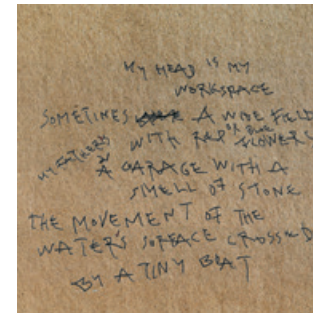 MY HEAD IS MY
WORKSPACE
SOMETIMES A WIDE FIELD
WITH RED OR BLUE FLOWERS
MY FATHER'S
A GARAGE WITH A
SMELL OF STONE
THE MOVEMENT OF THE
WATER'S SURFACE CROSSED
BY A TINY BOAT